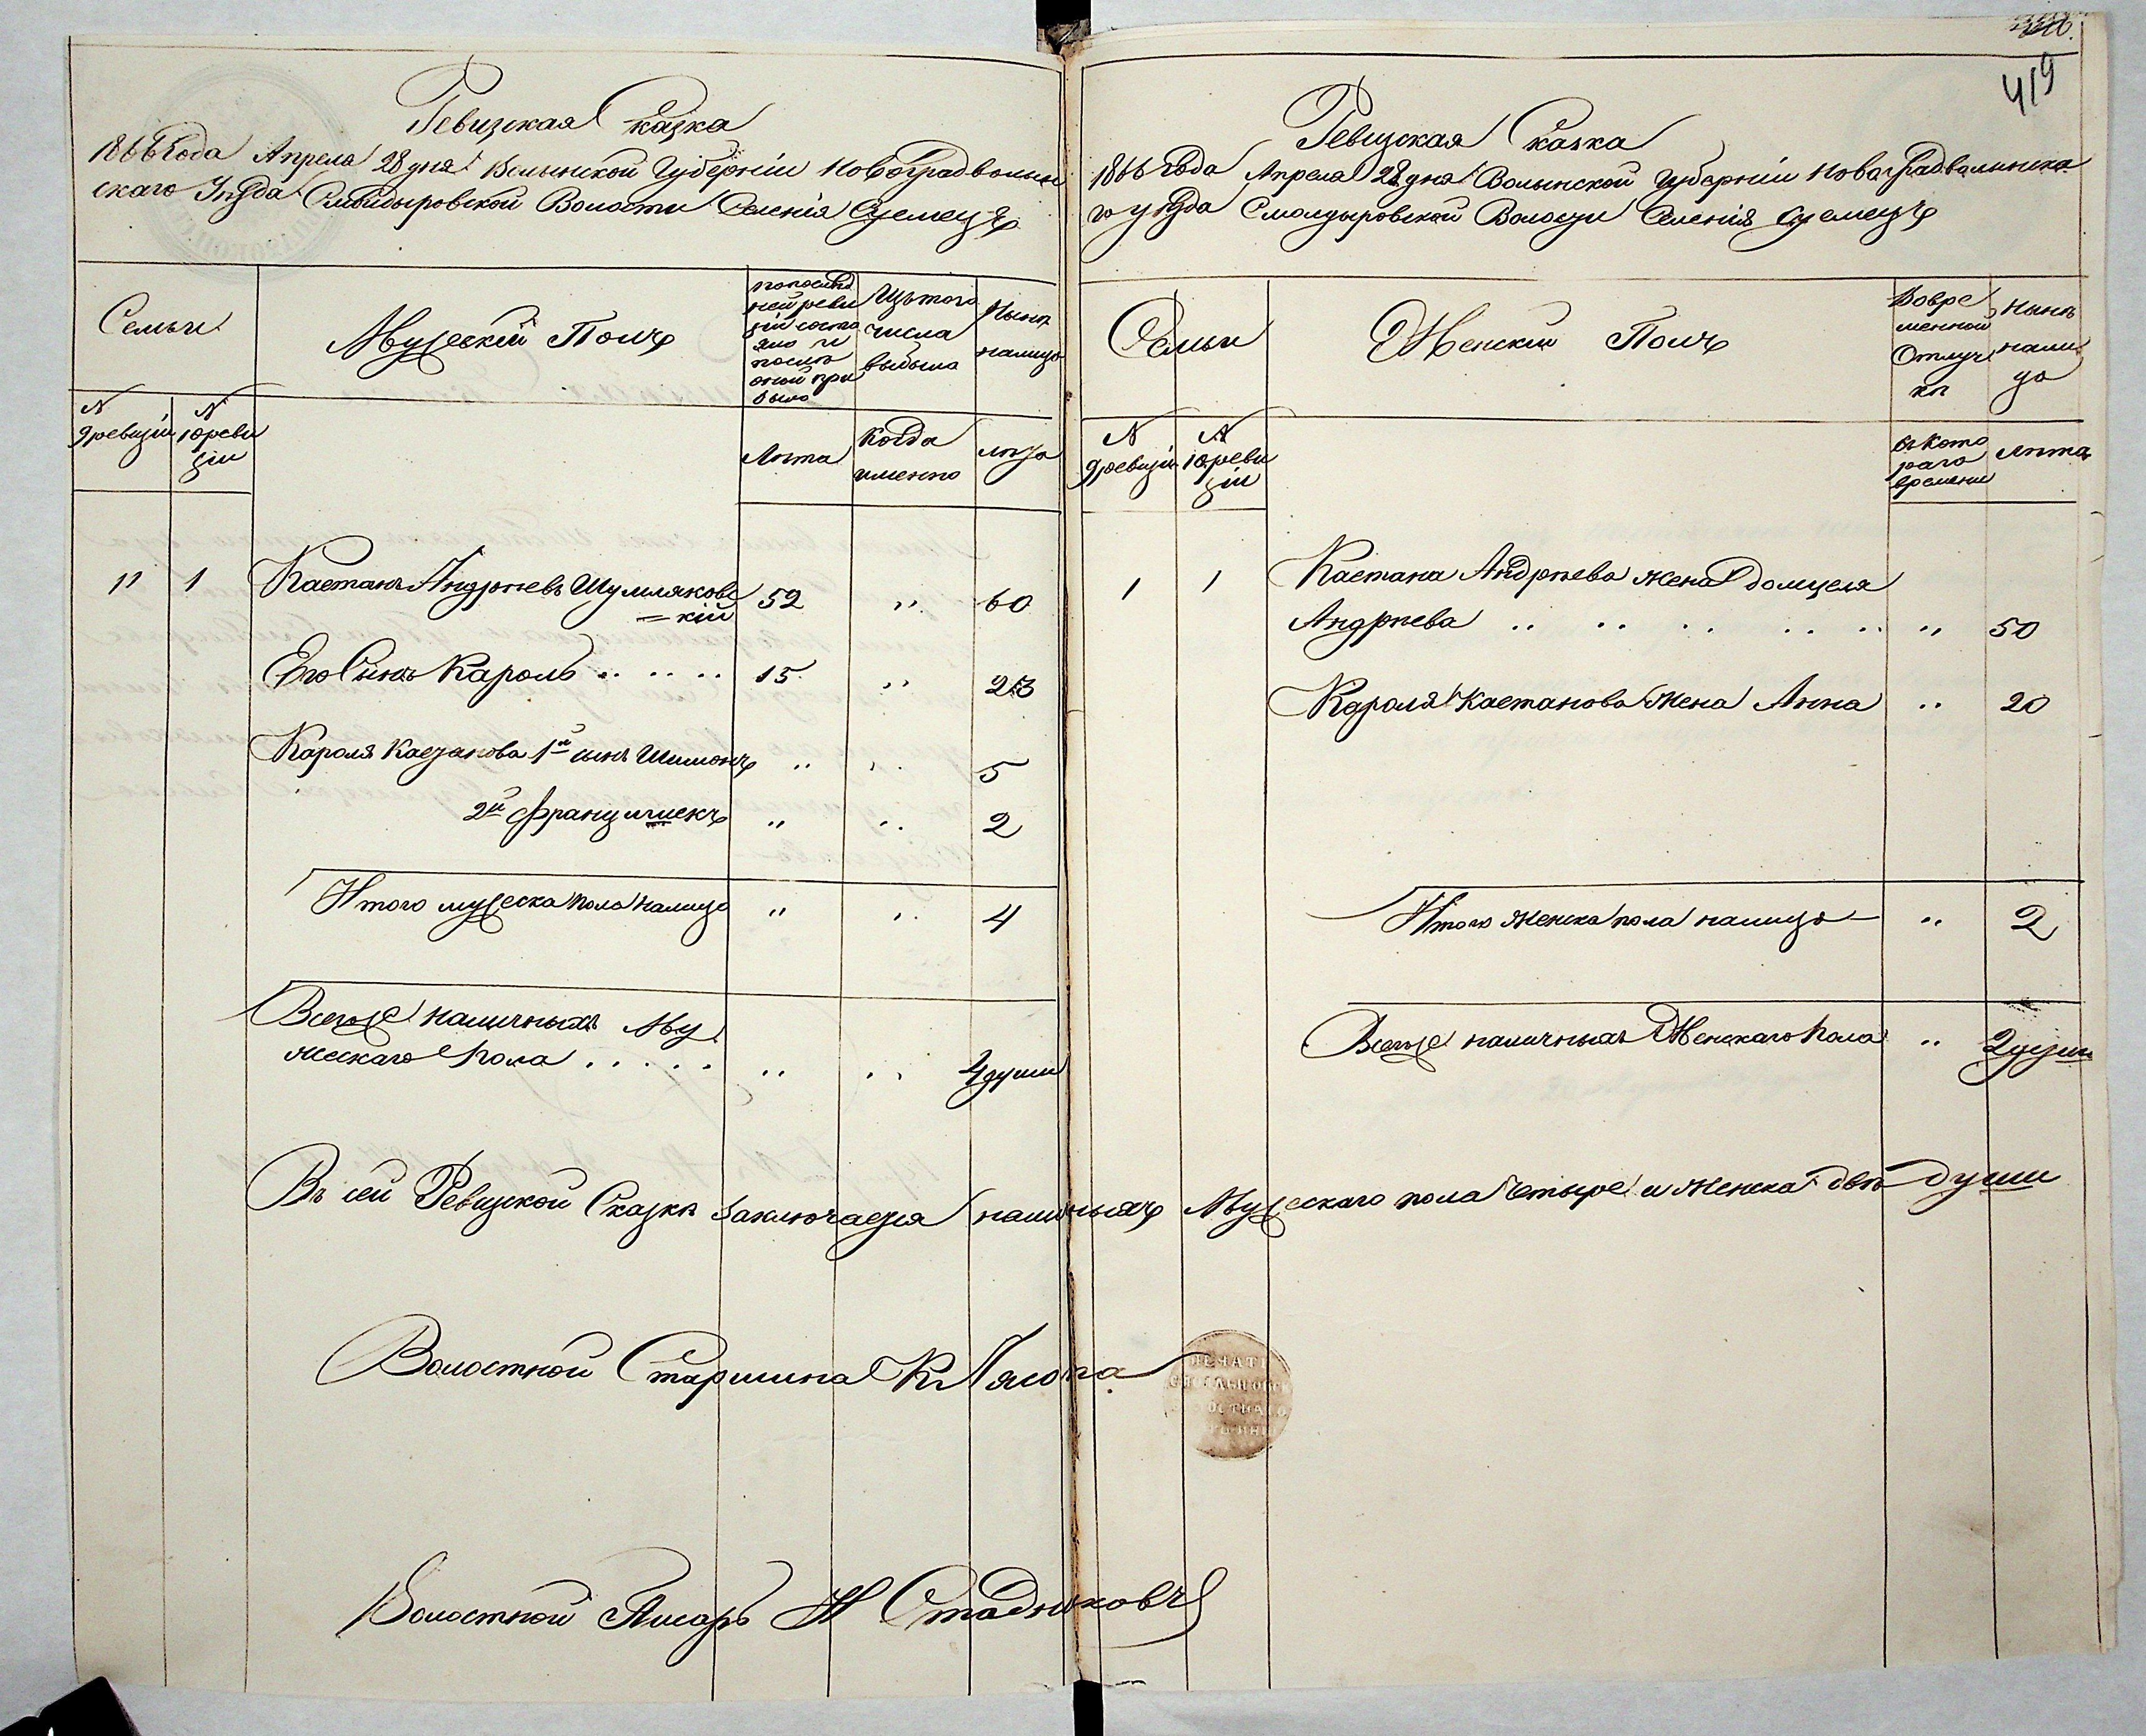 419
Ревизская Сказка
1866 Года Апреля 28 дня Волынской Губерніи Новоградволын
скаго Уѣзда Смолдыровской Волости Селенія
Семьи
Мужескій Полъ
по послѣд
ней реви
зіи состо
яло и
послѣ
оной при
было
Изъ того
числа
выбыло
Нынѣ
налицо
N
9 ревизіи
N
10 реви
зіи
Лѣта
Когда
именно
лѣта
" 1 Каетанъ Андрѣевъ Шумляковс 52 " 60
=кій
Его Сынъ Кароль .. .. .. 15 " 23
Кароля Каетанова 1й сынъ Шимонъ " " 5
2й Францишекъ " " 2
Итого мужеска пола налицо " " 4
Всего же наличныхъ Му
жескаго Пола . . . . . " " 4 души
Ревизская Сказка
1866 Года Апреля 28 дня Волынской Губерніи Новоградволынска
го уѣзда Смолдыровской Волости Селенія
Семьи
Женскій Полъ
Во вре
менной
Отлуч
кѣ
Нынѣ
нали
цо
N
9 ревизіи
N
10 реви
зіи
съ кото
раго
времени
Лѣта
1 1 Каетана Андрѣева жена Домицеля
Андрѣева .. .. .. .. .. " 50
Кароля Каетанова Жена Анна " 20
Итого Женска пола налицо — " 2
Всего же наличныхъ Женскаго Пола " 2 души
Въ сей Ревизкой Сказкѣ Заключается наличныхъ Мужескаго пола Четыре и Женска двѣ души
Волостной Старшина К
ПЕЧАТЬ
Волостной Писарь Н Стадниковъ